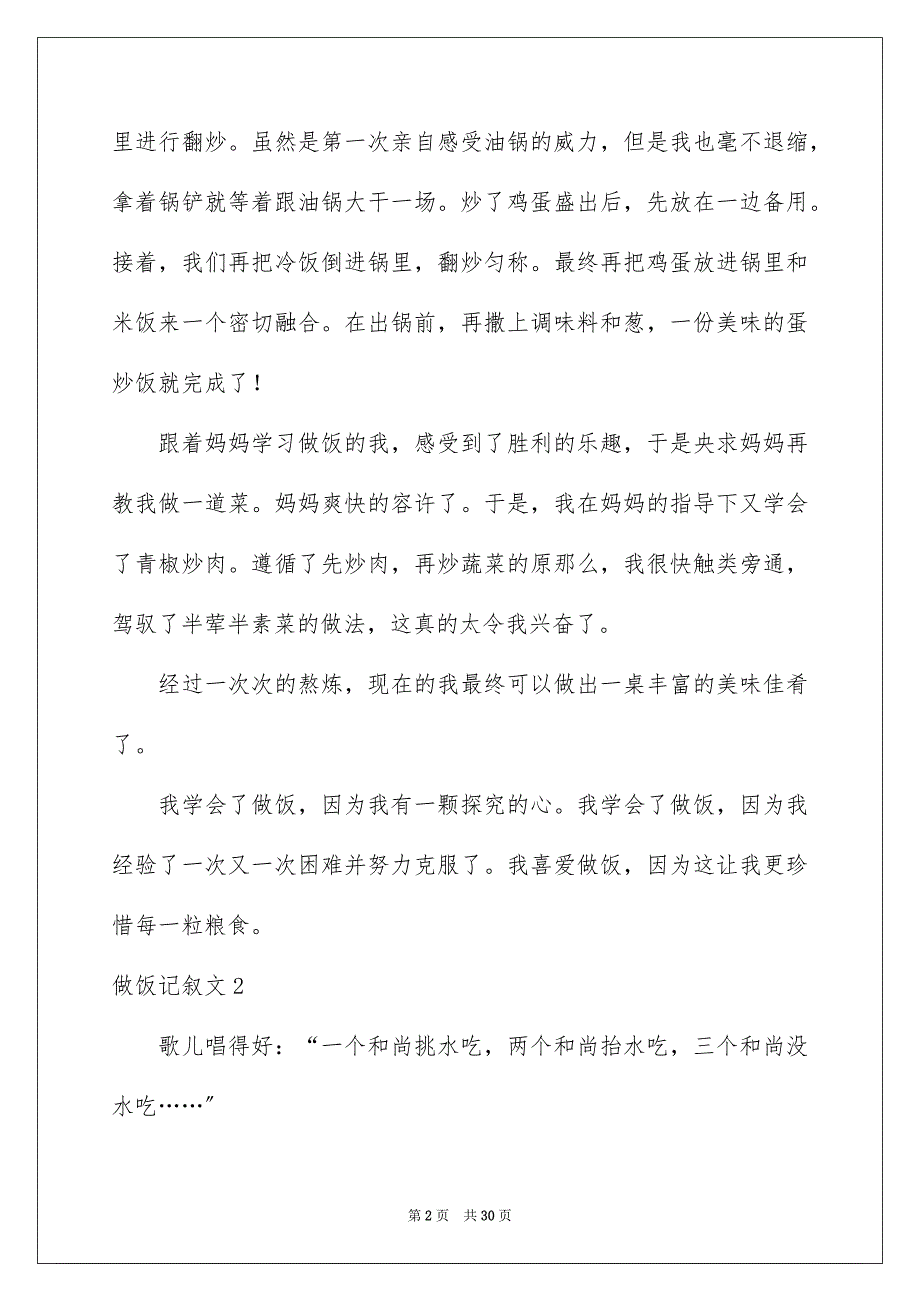 里进行翻炒。虽然是第一次亲自感受油锅的威力，但是我也毫不退缩，
拿着锅铲就等着跟油锅大干一场。炒了鸡蛋盛出后，先放在一边备用。
接着，我们再把冷饭倒进锅里，翻炒匀称。最终再把鸡蛋放进锅里和
米饭来一个密切融合。在出锅前，再撒上调味料和葱，一份美味的蛋
炒饭就完成了！
跟着妈妈学习做饭的我，感受到了胜利的乐趣，于是央求妈妈再
教我做一道菜。妈妈爽快的容许了。于是，我在妈妈的指导下又学会
了青椒炒肉。遵循了先炒肉，再炒蔬菜的原那么，我很快触类旁通，
驾驭了半荤半素菜的做法，这真的太令我兴奋了。
经过一次次的熬炼，现在的我最终可以做出一桌丰富的美味佳肴
了。
我学会了做饭，因为我有一颗探究的心。我学会了做饭，因为我
经验了一次又一次困难并努力克服了。我喜爱做饭，因为这让我更珍
惜每一粒粮食。
做饭记叙文 2
歌儿唱得好：“一个和尚挑水吃，两个和尚抬水吃，三个和尚没
水吃……〞
第 2 页 共 30 页